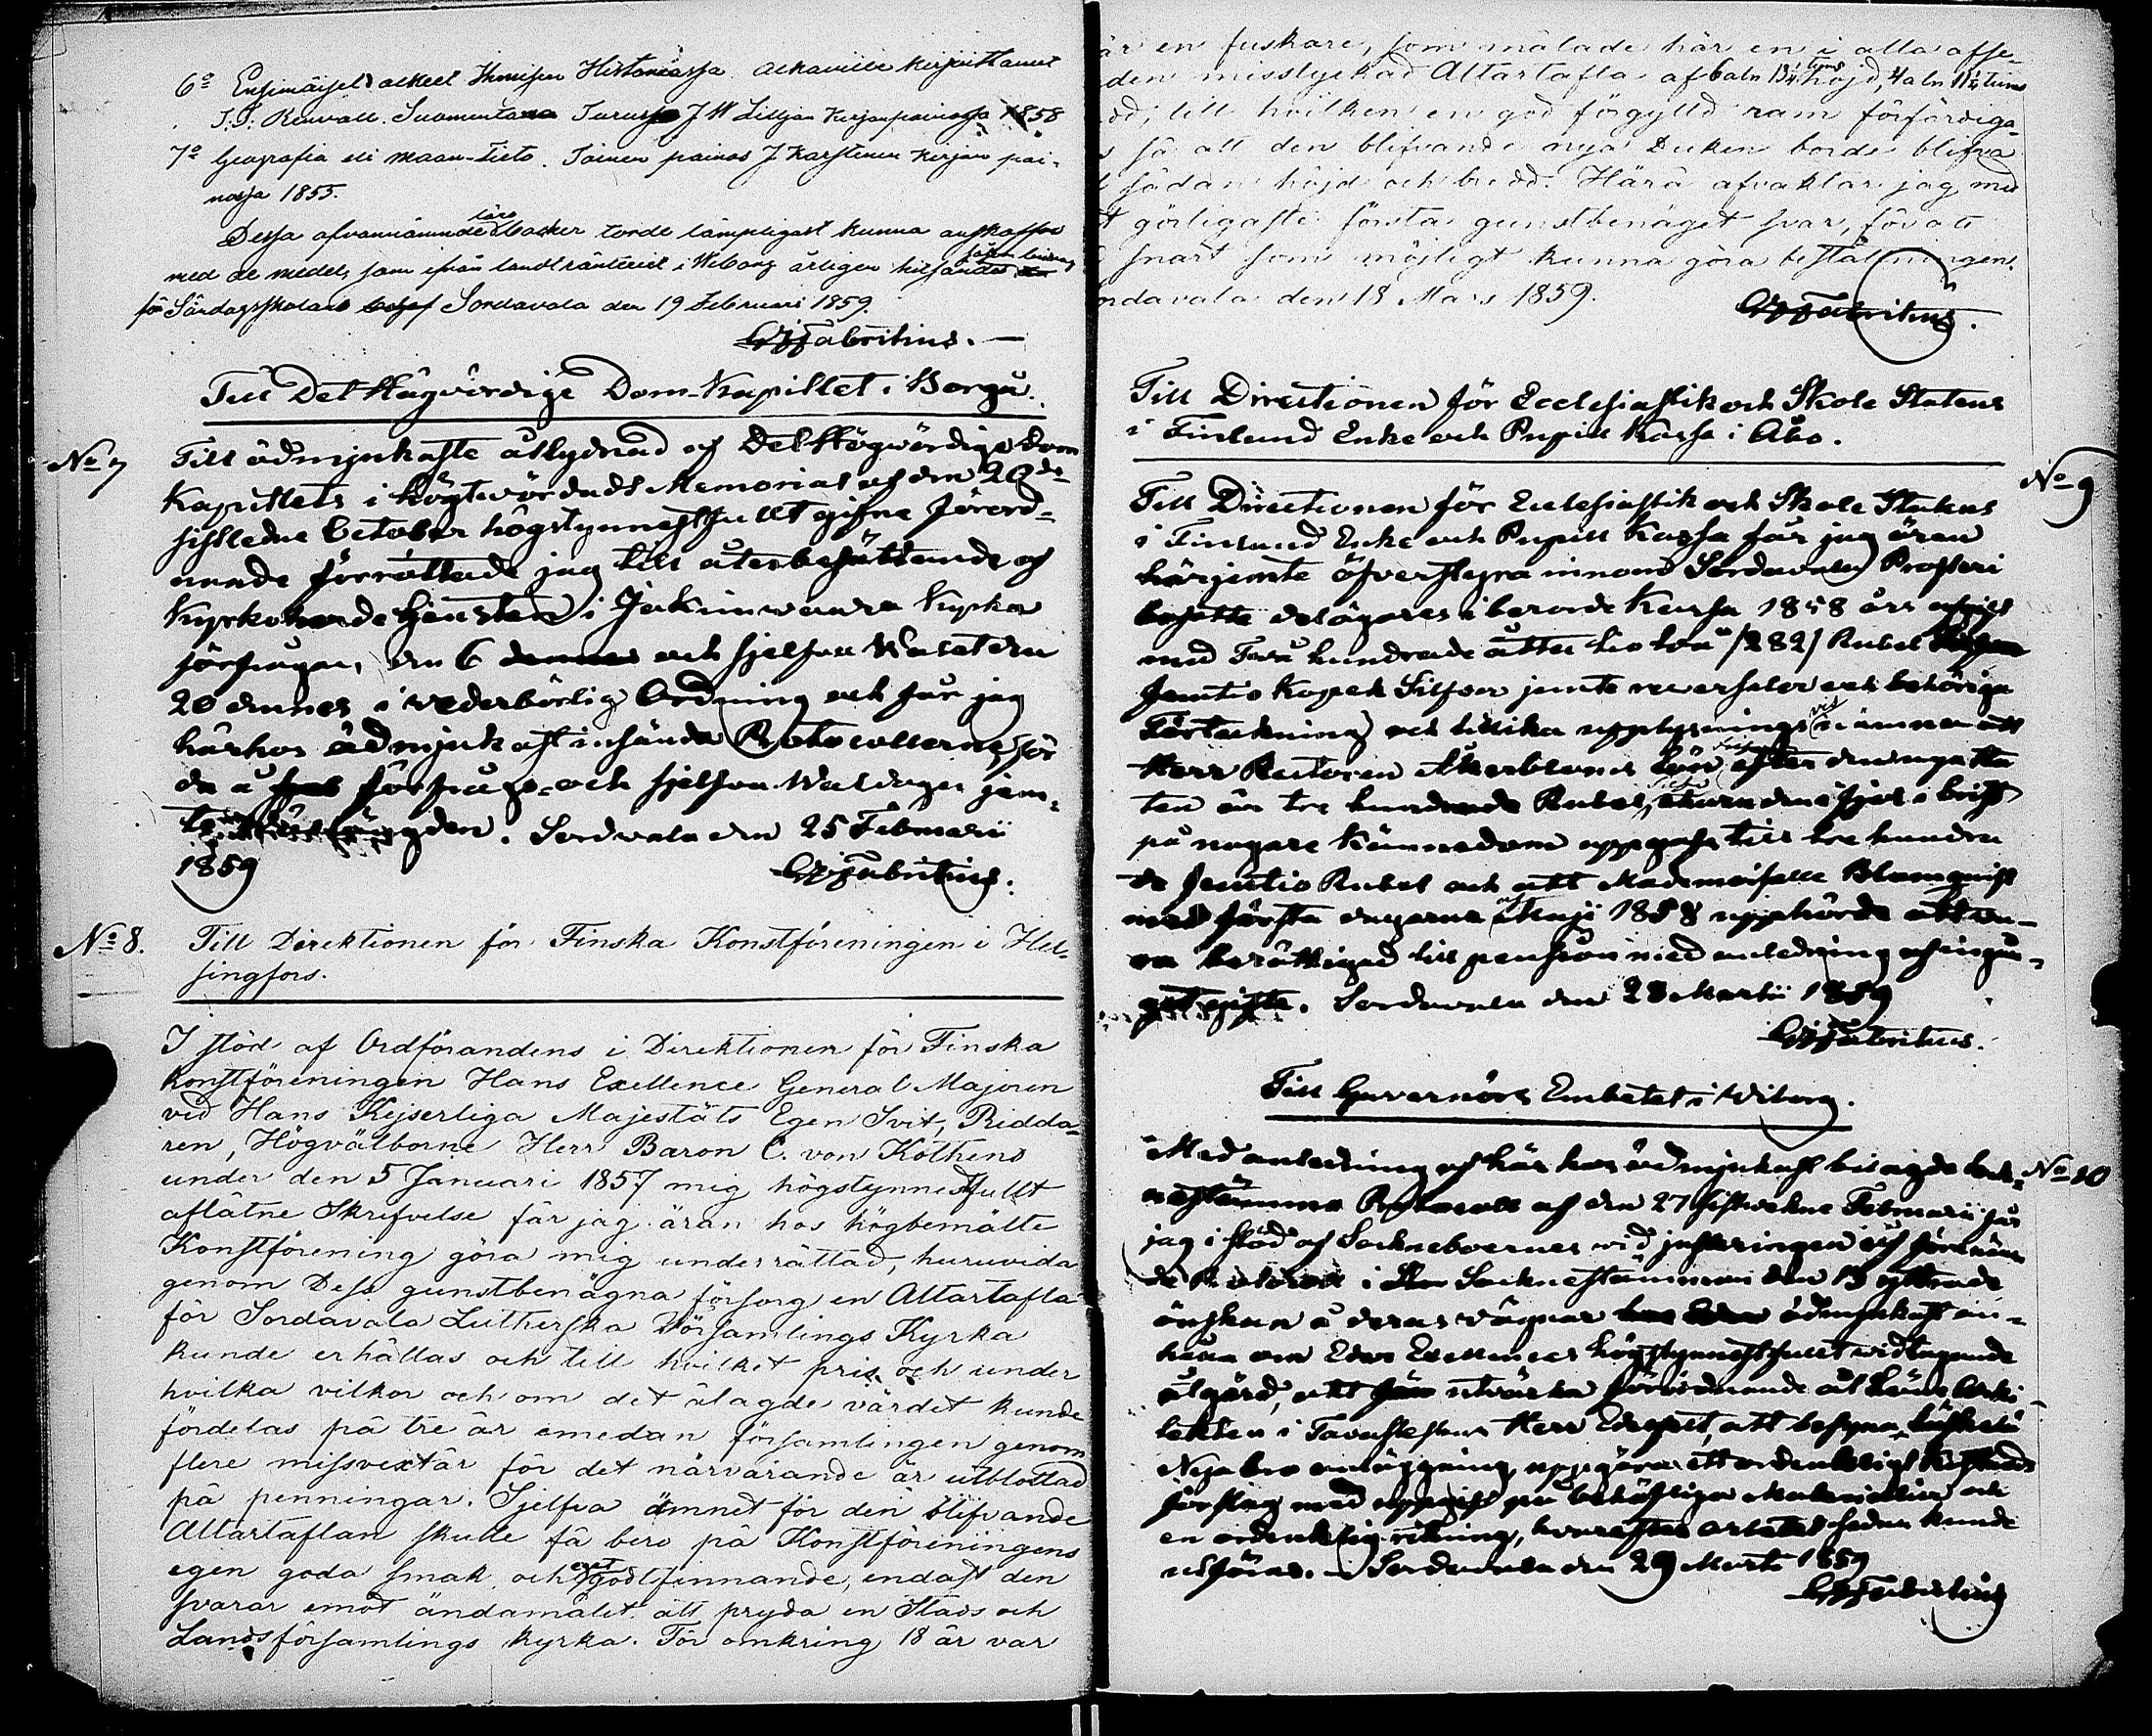 6:o Ensimäiset alkeet Ihmisen Historiassa. Alkaville kirjoittanut
T. T. Renvall. Suomentana Turussa J W Lilljan Kirjanpainossa 1858
7:o Geografia eli Maan-tieto. Toinen painos J Karstenin Kirjan pai-
nossa 1855.
Dessa ofvannämnde läro böcker torde lämpligast kunna anskaffas
med de medel, som ifrån landtränteriet i Wiborg årligen tilsändes
för Söndagsskolans Sordavala den 19 Februari 1859.
GJFabritius.
Till Det Högvördige Dom-Kapitlet i Borgå.
No 7 Till ödmjukaste åtlydnad af Det Högvördige Dom
Kapitlets i högtvördadt Memorial af den 20de
sistledne October högstgynnestfullt gifne förord-
nande förrättade jag till återbesättande af
Kyrkoherde tjensten i Jakimwaara Kyrko
församl, den 6 dennes och sjelfva Walet den
20 dennes i vederbörlig Ordning och får jag
härhos ödmjukast insända Protocollerne, för
da å frågo- och sjelfva Waldagen jem-
te längden. Sordvala den 25 Februarii
1859 GJFabritius.
No 8. Till Direktionen för Finska Konstföreningen i Hel-
singfors.
I stöd af Ordförandens i Direktionen för Finska
konstföreningen Hans Exellence General Majoren
vid Hans Kejserliga Majestäts Egen Svit, Ridda-
ren, Högvälborne Herr Baron C. von Kothens
under den 5 Januari 1857 mig högstgynnestfullt
aflåtne Skrifvelse får jag äran hos högbemälte
Konstförening göra mig underrättad, huruvida
genom Dess gunstbenägna försorg en Altartafla
för Sordavala Lutherska Församlings Kyrka
kunde erhållas och till hvilket pris och under
hvilka vilkor och om det ålagde värdet kunde
fördelas på tre år emedan församlingen genom
flere missvextår för det närvarande är utblottad
på penningar. Sjelfva ämnet för den blifvande
Altartaflan skulle få bero på Konstföreningens
egen goda smak och eget godtfinnande, endast den
svarar emot ändamålet att pryda en Stads och
Landsförsamlings kyrka. För omkring 18 år var
är en fuskare, som målade här en i alla afse-
den misslyckad Altartafla af 6 aln 13¼ tums höjd, 4 aln 11½ tum
dd, till hvilken en god förgylld ram förfärdiga-
s så att den blifvande nya Duken borde blifva
sådan höjd och bredd. Härå afvaktar jag med
t görligaste första gunstbenäget svar, för att
snart som möjligt kunna göra beställningen.
ordavala den 18 Mars 1859.
GJFabritius.
Till Directionen för Ecclesiastik och Skole Statens
i Finland Enke och Pupill Kassa i Åbo.
No 9
Till Directionen för Ecclesiastik och Skole Statens
i Finland Enke och Pupill Kassa får jag äran
härjemte öfverstyra innom Sordavala Prosteri
bosatte delägares i berörde Kassa 1858 års afgift
med Två hundrade åttatio två /282/ Rubel
femtio Kopek Silfver jemte reversaler och behöriga
Förteckning och tillika upplysningsvis nämna att
Herr Rectoren Åkerbloms lön efter
ten är tre hundrade Rubel, i brist
på nogare kännedom uppgafs till tre hundra
de femtio Rubel och att Mademoiselle Blomquist
med första dagarne af Maji 1858 upphörde att va-
ra berättigad till pension med anledning af ingån-
get gifte. Sordavala den 28 Martii 1859
GJFabritius.
Till Guvernörs Embetet i Wiborg.
No 10
Med anledning af här hos ödmjukast bilagde Sock-
nestämmo Protocoll af den 27 sistvekne Februarii får
jag i stöd af Sockneboernes vid justeringen af förenäm
de Protocoll i Socknestämman den 13 yttrade
önskan å deras vägnar ödmjukast an-
hålla om Eders Exellences högstgynnestfullt vidtagande
åtgärd, att utvärka förordnande åt Läns Arki-
tekten i Tavastehus Herr Edelfelt, att besyna
Nya bro anläggning, uppgöra ett ordentligt Kostnads
förslag med uppgift på behöfliga Materialier och
en ordentlig ritning, hvarefter arbetet sedan kunde
utföras. Sordavala den 29 Martii 1859
GJFabritius